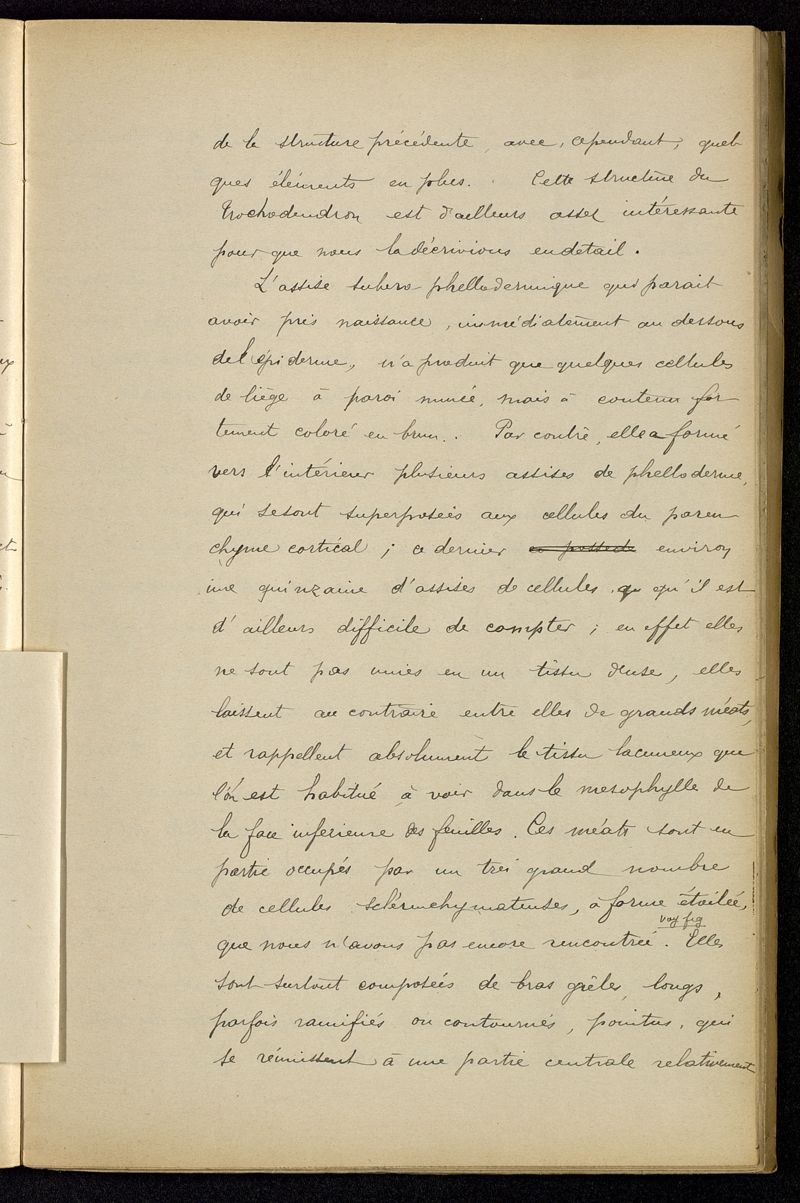 de la structure précédente, avec, cependant, quel-
ques éléments en plus. Cette structure du
Trochodendron est d'ailleurs assez intéressante
pour que nous la décrivions en détail.
L'assise subéro-phellodermique qui parait
avoir pris naissance, immédiatement au dessous
de l'épiderme, n'a produit que quelques cellules
de liège à paroi mince, mais à contenu for-
tement coloré en brun. Par contre, elle a formé
vers l'intérieur plusieurs assises de phelloderme,
qui se sont superposées aux cellules du paren-
chyme cortical ; ce dernier en possède environ
une quinzaine d'assises de cellules, qu'il est
d'ailleurs difficile de compter ; en effet elles
ne sont pas unies en un tissu dense, elles
laissent au contraire entre elles de grands méats,
et rappellent absolument le tissu lacuneux que
l'on est habitué à voir dans le mesophylle de
la face inférieure des feuilles. Ces méats sont en
partie occupés par un très grand nombre
de cellules sclérenchymateuses, à forme étoilée,
voy fig
que nous n'avons pas encore rencontrée. Elles
sont surtout composées de bras grêles, longs,
parfois ramifiés ou contournés, pointus, qui
se réunissent à une partie centrale relativement